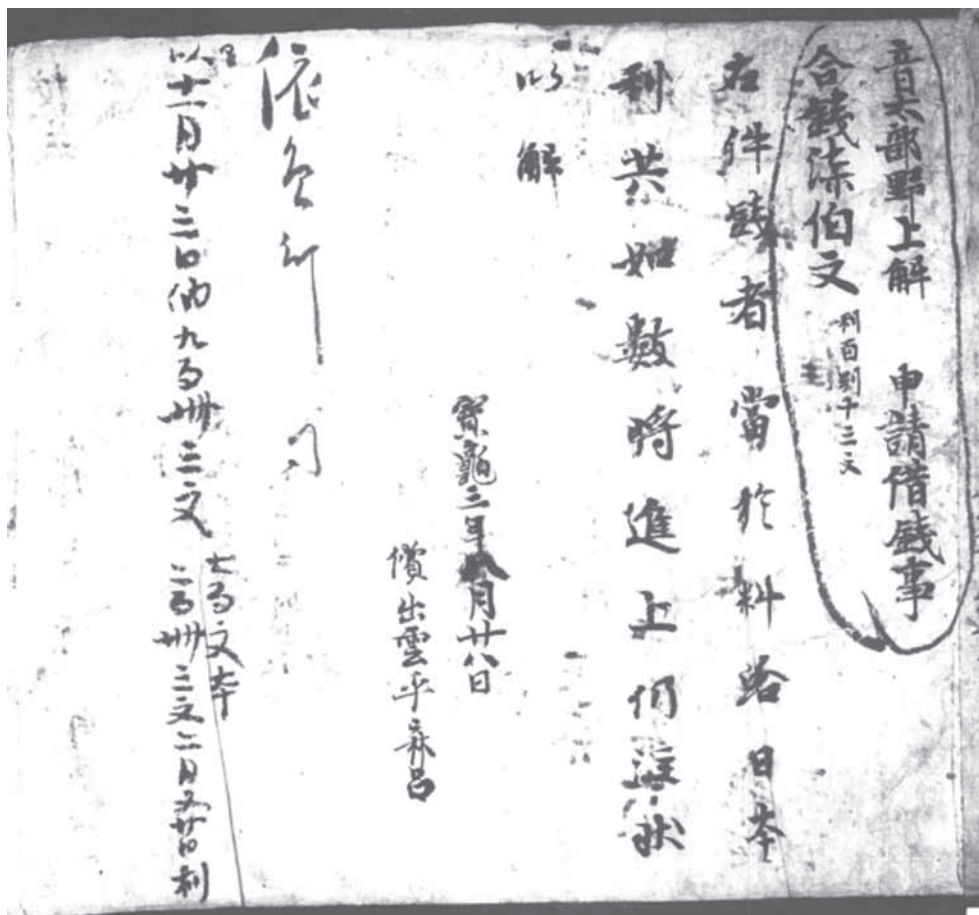 音太部野上解 申請借錢事
合錢漆伯文 利百別十三文
右件錢者當於料給日本
利共如數將進上仍注状
以解
寳龜三年八月廿八日
償出雲乎麻呂
依員行
以十一月廿三日納九百卌三文 七百文本
二百卌三文二月又廿日利